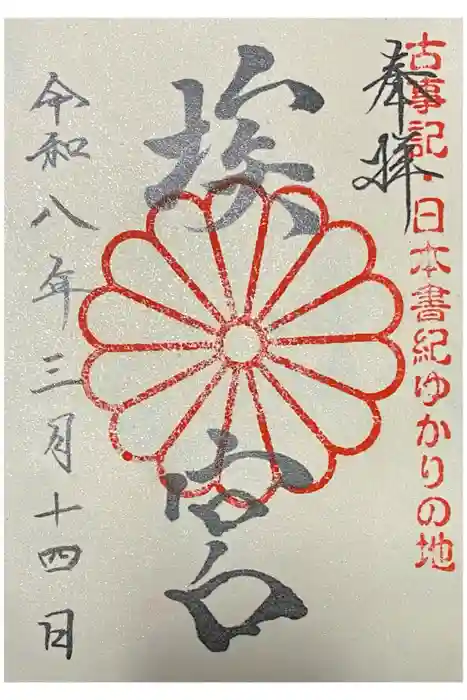 古事記・日本書紀ゆかりの地
奉拝
埃宮
令和八年三月十四日